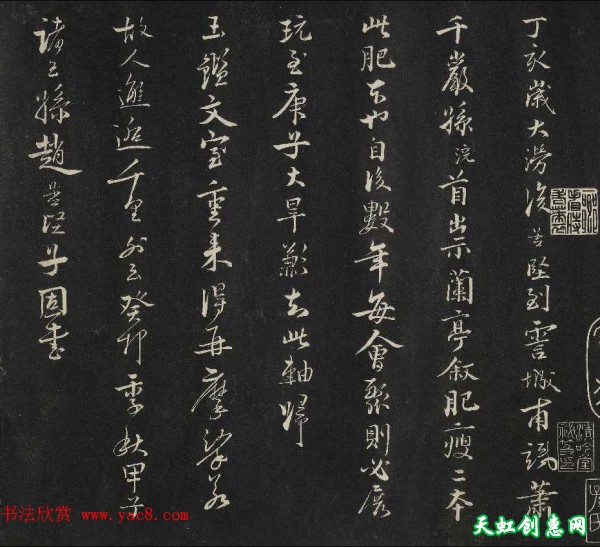 丁亥歲大澇後孟堅到霅城甫謁蕭
千巖孫浣首出示蘭亭敘肥瘦二本
此肥本也自後數年每會聚則必展
玩至庚子大旱蕭去此軸歸
玉鑑文室重來得再摩挲若
故人邂逅千里外云癸卯季秋甲子
諸王孫趙孟堅子固書
书法欣赏 www.yac8.com
天虹创惠网